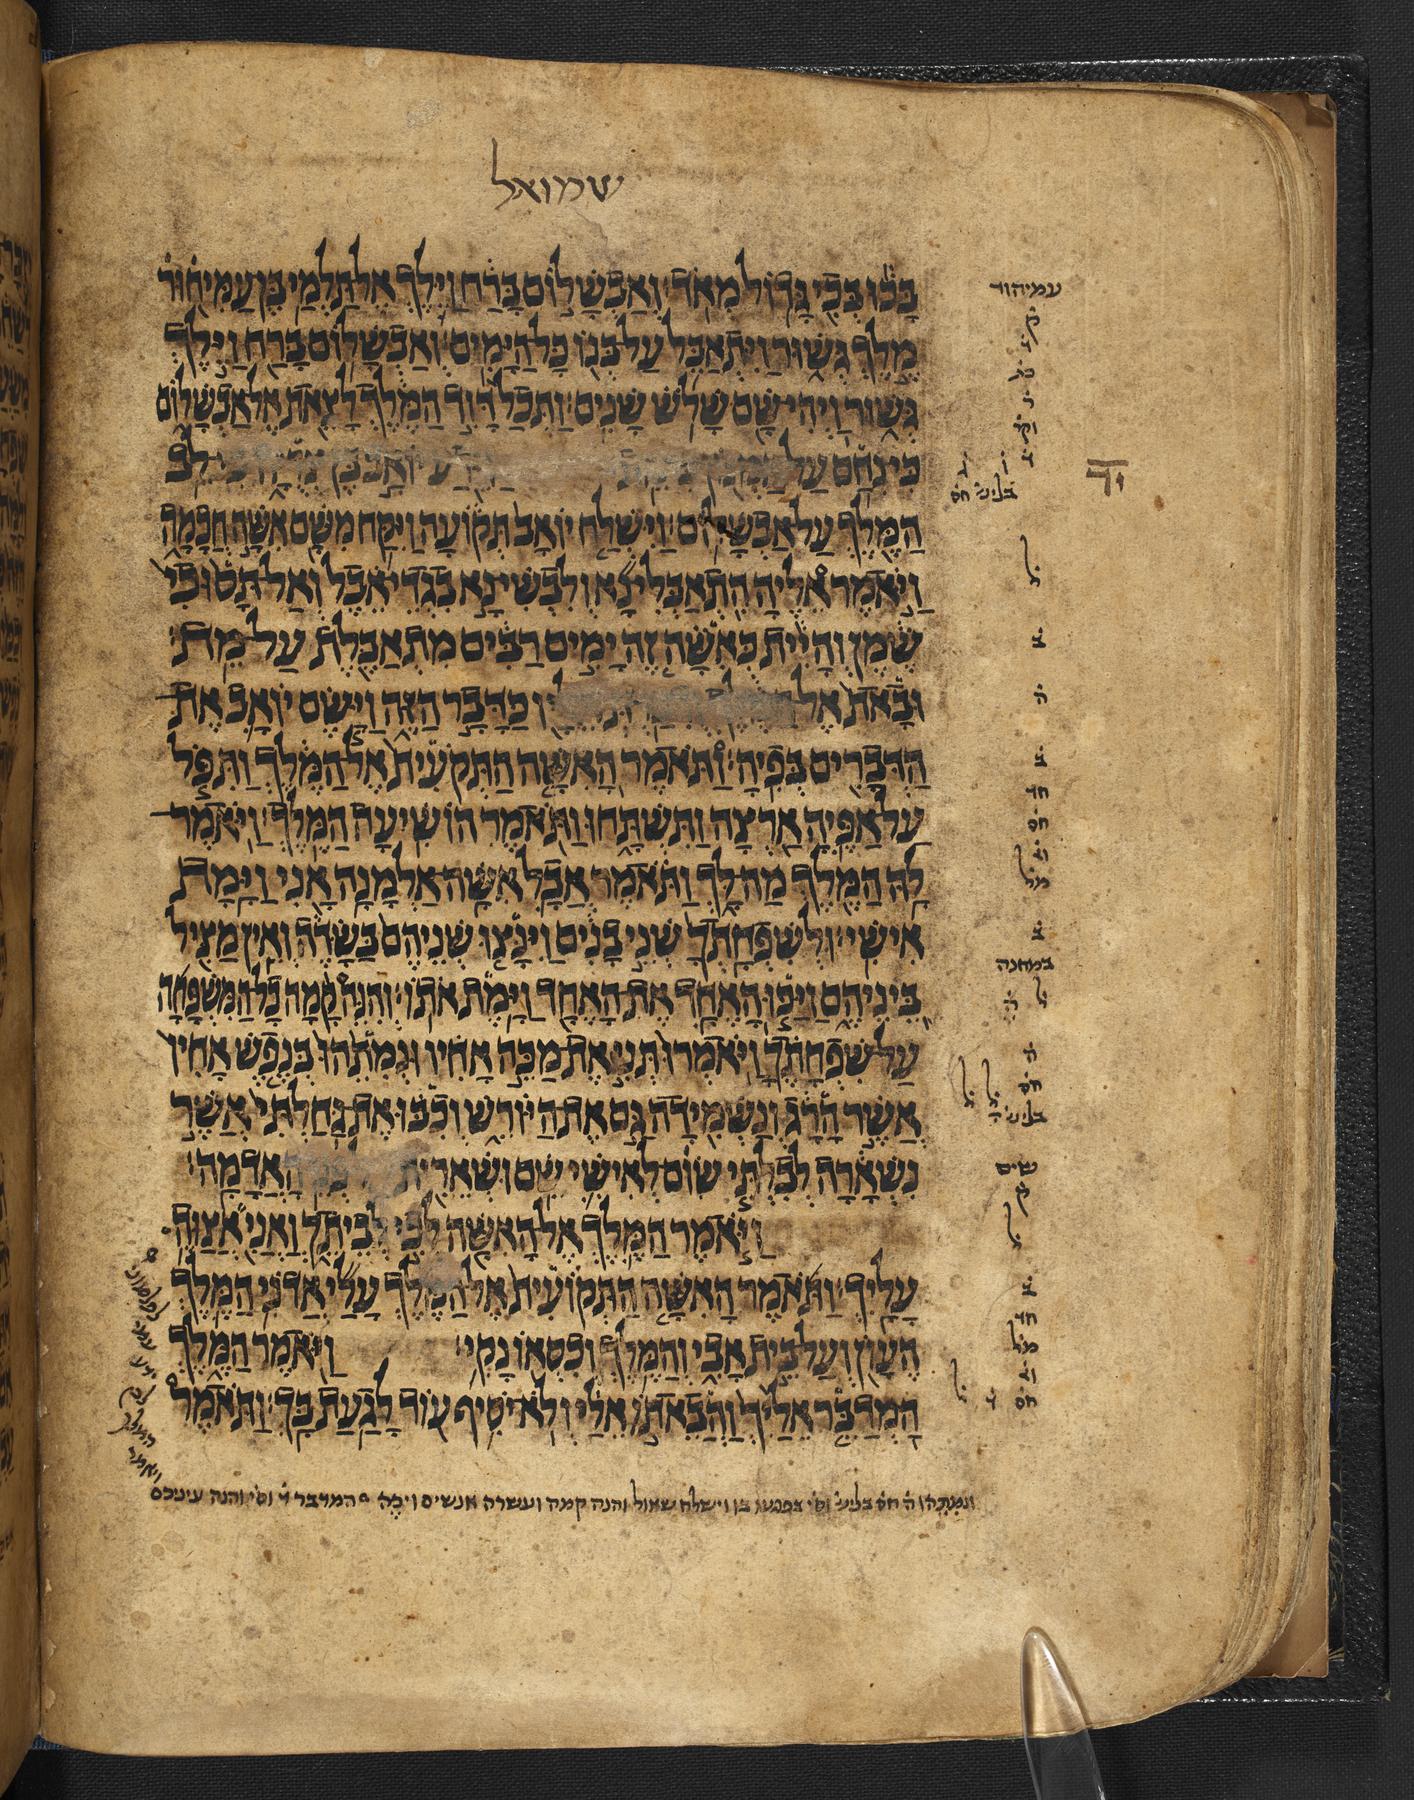 שמואל
בָּכ֕וּ בְּכִ֖י גָּד֥וֹל מְאֹֽד׃ וְאַבְשָׁל֣וֹם בָּרַ֔ח וַיֵּ֛לֶךְ אֶל־תַּלְמַ֥י בֶּן־עַמִּיח֖וּר
מֶ֣לֶךְ גְּשׁ֑וּר וַיִּתְאַבֵּ֥ל עַל־בְּנ֖וֹ כָּל־הַיָּמִֽים׃ וְאַבְשָׁל֥וֹם בָּרַ֖ח וַיֵּ֣לֶךְ
גְּשׁ֑וּר וַיְהִי־שָׁ֖ם שָׁלֹ֥שׁ שָׁנִֽים׃ וַתְּכַל֙ דָּוִ֣ד הַמֶּ֔לֶךְ לָצֵ֖את אֶל־אַבְשָׁל֑וֹם
כִּֽי־נִחַ֥ם עַל לֵ֥ב
הַמֶּ֖לֶךְ עַל־אַבְשָׁלֽוֹם׃ וַיִּשְׁלַ֤ח יוֹאָב֙ תְּק֔וֹעָה וַיִּקַּ֥ח מִשָּׁ֖ם אִשָּׁ֣ה חֲכָמָ֑ה
וַיֹּ֣אמֶר אֵ֠לֶיהָ הִֽתְאַבְּלִי־נָ֞א וְלִבְשִׁי־נָ֣א בִגְדֵי־אֵ֗בֶל וְאַל־תָּס֙וּכִי֙
שֶׁ֔מֶן וְהָיִ֕ית כְּאִשָּׁ֗ה זֶ֚ה יָמִ֣ים רַבִּ֔ים מִתְאַבֶּ֖לֶת עַל־מֵֽת׃
וּבָאת֙ אֶל כַּדָּבָ֣ר הַזֶּ֑ה וַיָּ֧שֶׂם יוֹאָ֛ב אֶת
הַדְּבָרִ֖ים בְּפִֽיהָ׃ וַ֠תֹּאמֶר הָאִשָּׁ֤ה הַתְּקֹעִית֙ אֶל־הַמֶּ֔לֶךְ וַתִּפֹּ֧ל
עַל־אַפֶּ֛יהָ אַ֖רְצָה וַתִּשְׁתָּ֑חוּ וַתֹּ֖אמֶר הוֹשִׁ֥עָה הַמֶּֽלֶךְ׃ וַיֹּֽאמֶר
לָ֥הּ הַמֶּ֖לֶךְ מַה־לָּ֑ךְ וַתֹּ֗אמֶר אֲבָ֛ל אִשָּֽׁה־אַלְמָנָ֥ה אָ֖נִי וַיָּ֥מָת
אִישִֽׁי׃ וּלְשִׁפְחָֽתְךָ֙ שְׁנֵ֣י בָנִ֔ים וַיִּנָּצ֤וּ שְׁנֵיהֶם֙ בַּשָּׂדֶ֔ה וְאֵ֥ין מַצִּ֖יל
בֵּֽינֵיהֶ֑ם וַיַּכּ֧וֹ הָאֶחָ֛ד אֶת־הָאֶחָ֖ד וַיָּ֥מֶת אֹתֽוֹ׃ וְהִנֵּה֩ קָ֨מָה כָֽל־הַמִּשְׁפָּחָ֜ה
עַל־שִׁפְחָתֶ֗ךָ וַיֹּֽאמְרוּ֙ תְּנִ֣י ׀ אֶת־מַכֵּ֣ה אָחִ֗יו וּנְמִתֵ֙הוּ֙ בְּנֶ֤פֶשׁ אָחִיו֙
אֲשֶׁ֣ר הָרָ֔ג וְנַשְׁמִ֖ידָה גַּ֣ם אֶת־הַיּוֹרֵ֑שׁ וְכִבּ֗וּ אֶת־גַּֽחַלְתִּי֙ אֲשֶׁ֣ר
נִשְׁאָ֔רָה לְבִלְתִּ֧י שׂוֹם־לְאִישִׁ֛י שֵׁ֥ם וּשְׁאֵרִ֖ית הָאֲדָמָֽה׃
וַיֹּ֧אמֶר הַמֶּ֛לֶךְ אֶל־הָאִשָּׁ֖ה לְכִ֣י לְבֵיתֵ֑ךְ וַאֲנִ֖י אֲצַוֶּ֥ה
עָלָֽיִךְ׃ וַתֹּ֜אמֶר הָאִשָּׁ֤ה הַתְּקוֹעִית֙ אֶל־הַמֶּ֔לֶךְ עָלַ֞י אֲדֹנִ֧י הַמֶּ֛לֶךְ
הֶעָוֺ֖ן וְעַל־בֵּ֣ית אָבִ֑י וְהַמֶּ֥לֶךְ וְכִסְא֖וֹ נָקִֽי׃ וַיֹּ֖אמֶר הַמֶּ֑לֶךְ
הַֽמְדַבֵּ֤ר אֵלַ֙יִךְ֙ וַֽהֲבֵאת֣וֹ אֵלַ֔י וְלֹֽא־יֹסִ֥יף ע֖וֹד לָגַ֥עַת בָּֽךְ׃ וַתֹּ֩אמֶר֩
עמיהוד
ק
יד
בליש חס
חד
חס
מל
במחנה
חס
בליש
שים
ק
חד
מל
חס
וישלח שאול והנה קמה ועשרה אנשים ויכה המדבר והנה עיניכם